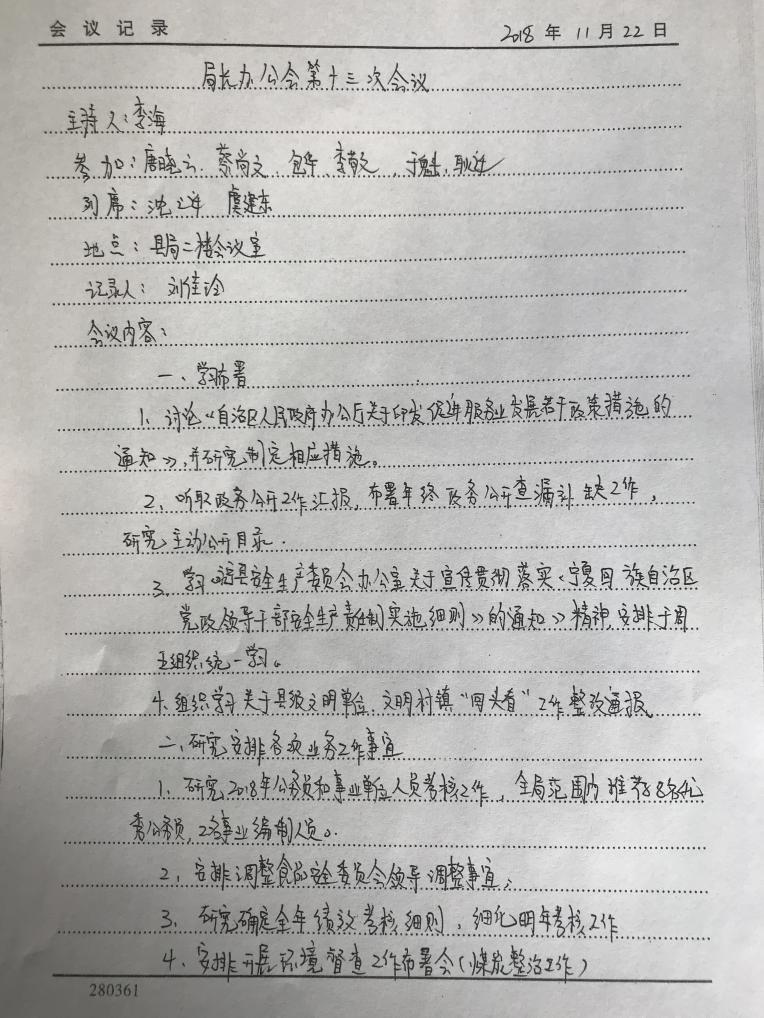 会议记录 2018年11月22日
局长办公会第十三次会议
主持人:李海
参加:唐晓云、蔡尚文、包华、李敬文、于魁、耿
列席:沈 虞建东
地点:县局二楼会议室
记录人:刘佳玲
会议内容:
一、学习布署
1、讨论《自治区人民政府办公厅关于印发促进服务业发展若干政策措施的
通知》,并研究制定相应措施。
2、听取政务公开工作汇报,布署年终政务公开查漏补缺工作,
研究主动公开目录.
3、学习《县安全生产委员会办公室关于宣传贯彻落实《宁夏回族自治区
党政领导干部安全生产责任制实施细则》的通知》精神,安排于周
五组织统一学习。
4、组织学习关于县级文明单位、文明村镇“回头看”工作整改通报。
二、研究安排各项业务工作事宜
1、研究2018年公务员和事业单位人员考核工作,全局范围内推荐8名优
秀公务员,2名事业编制人员。
2、安排调整食品安全委员会领导调整事宜;
3、研究确定全年绩效考核细则,细化明年考核工作
4、安排开展环境督查工作布署会(煤炭整治工作)
280361